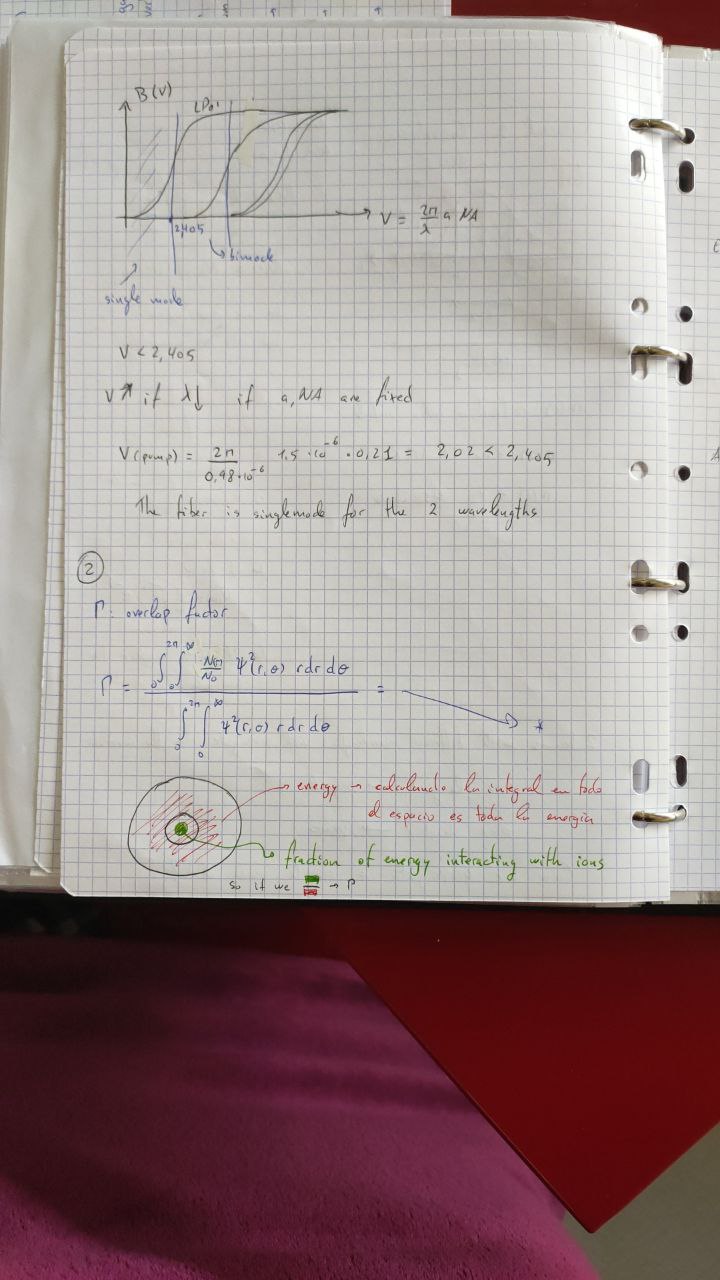 B(V)
LP01
2,405
V = 2π/λ a NA
bimode
single mode
V < 2,405
V↗ if λ↓ if a, NA are fixed
V(pump) = 2π/0,98·10⁻⁶ 1.5·10⁻⁶·0,21 = 2,02 < 2,405
The fiber is singlemode for the 2 wavelengths
2
Γ: overlap factor
Γ = ∫₀^2π ∫₀^∞ N(r)/N₀ Ψ²(r,θ) r dr dθ / ∫₀^2π ∫₀^∞ Ψ²(r,θ) r dr dθ = → *
energy → calculando la integral en todo
el espacio es toda la energía
fraction of energy interacting with ions
so if we → Γ